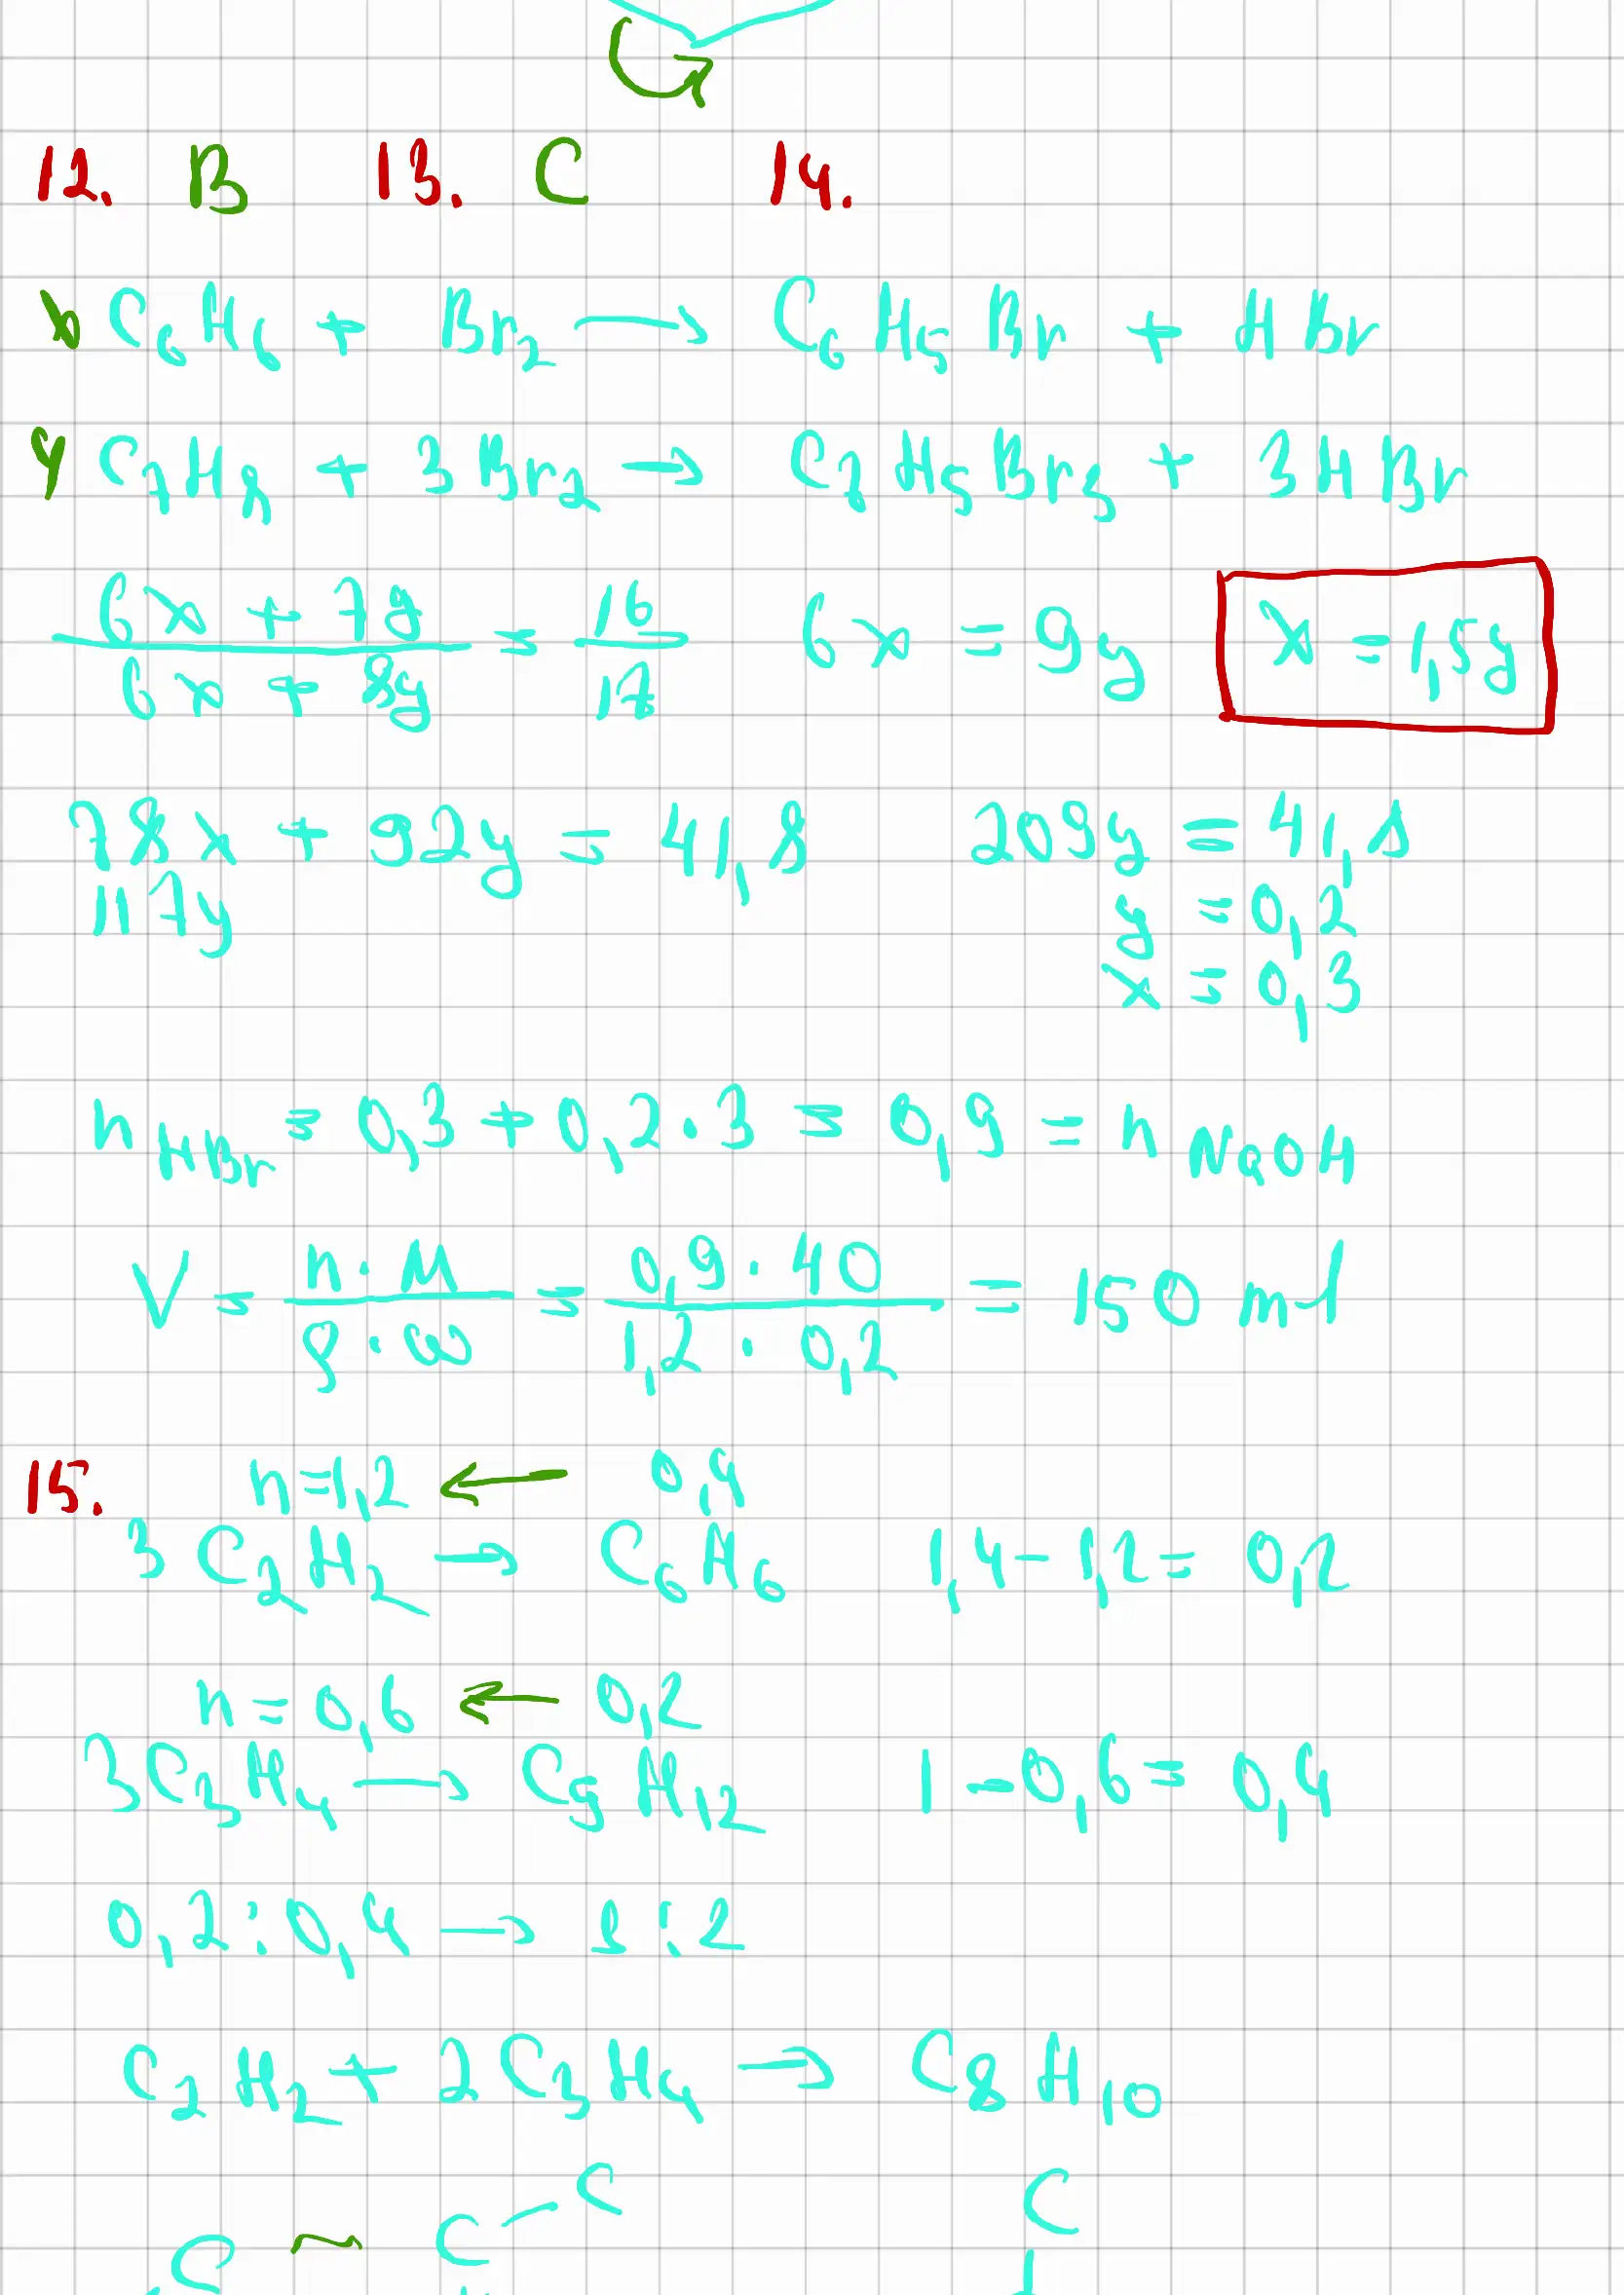 12. B 13. C 14.
x C₆H₆ + Br₂ → C₆H₅Br + HBr
y C₇H₈ + 3Br₂ → C₇H₅Br₃ + 3HBr
(6x + 7y)/(6x + 8y) = 16/17 6x = 9y x = 1,5y
78x + 92y = 41,8 209y = 41,8
117y y = 0,2
x = 0,3
n HBr = 0,3 + 0,2·3 = 0,9 = n NaOH
V = (n·M)/(ρ·ω) = (0,9·40)/(1,2·0,2) = 150 ml
15. n=1,2 ← 0,4
3C₂H₂ → C₆H₆ 1,4-1,2= 0,2
n = 0,6 ← 0,2
3C₃H₄ → C₉H₁₂ 1-0,6= 0,4
0,2:0,4 → 1:2
C₂H₂+ 2C₃H₄ → C₈H₁₀
C - C C
C ~